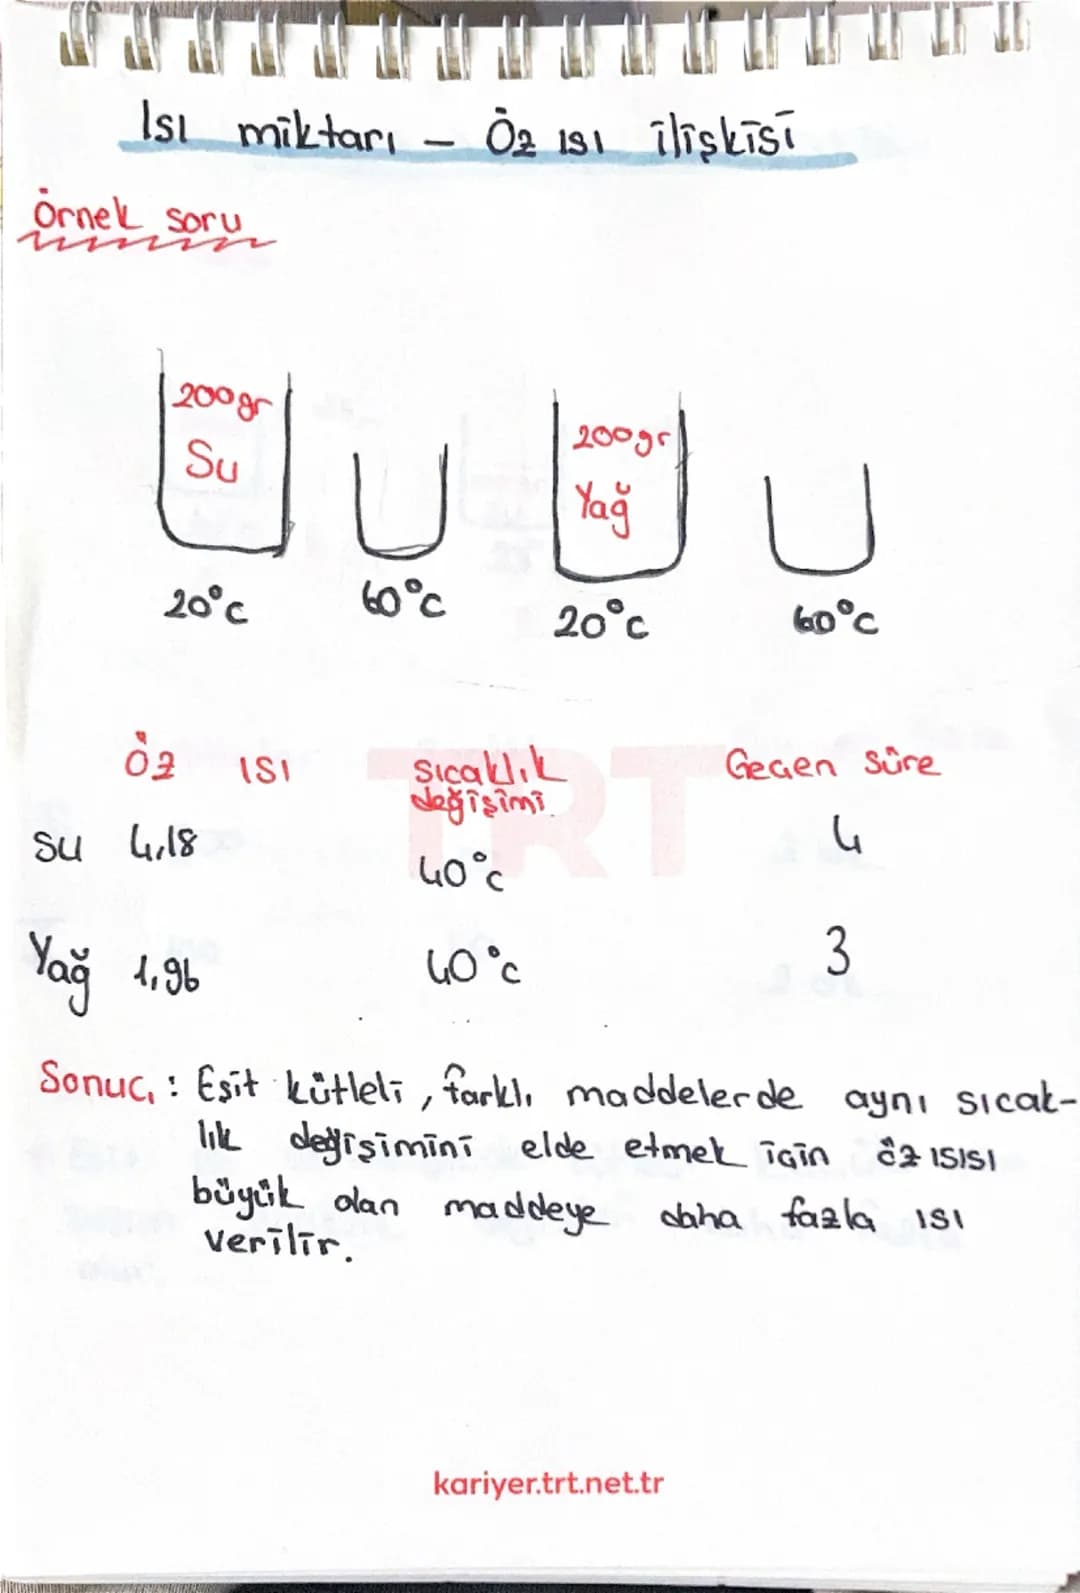 Isı miktarı - Öz ısı ilişkisi
Örnek soru
200gr
Su
200gr
Yağ
20°c
60°c
20°c
60°c
Öz ısı
Sıcaklık
değişimi
Geçen süre
TRT
Su 4,18
40°c
4
Yağ 1,96
40°c
3
Sonuç : Eşit kütleli, farklı maddelerde aynı sıcak-
lık değişimini elde etmek için öz ısısı
büyük olan maddeye daha fazla ısı
verilir.
kariyer.trt.net.tr